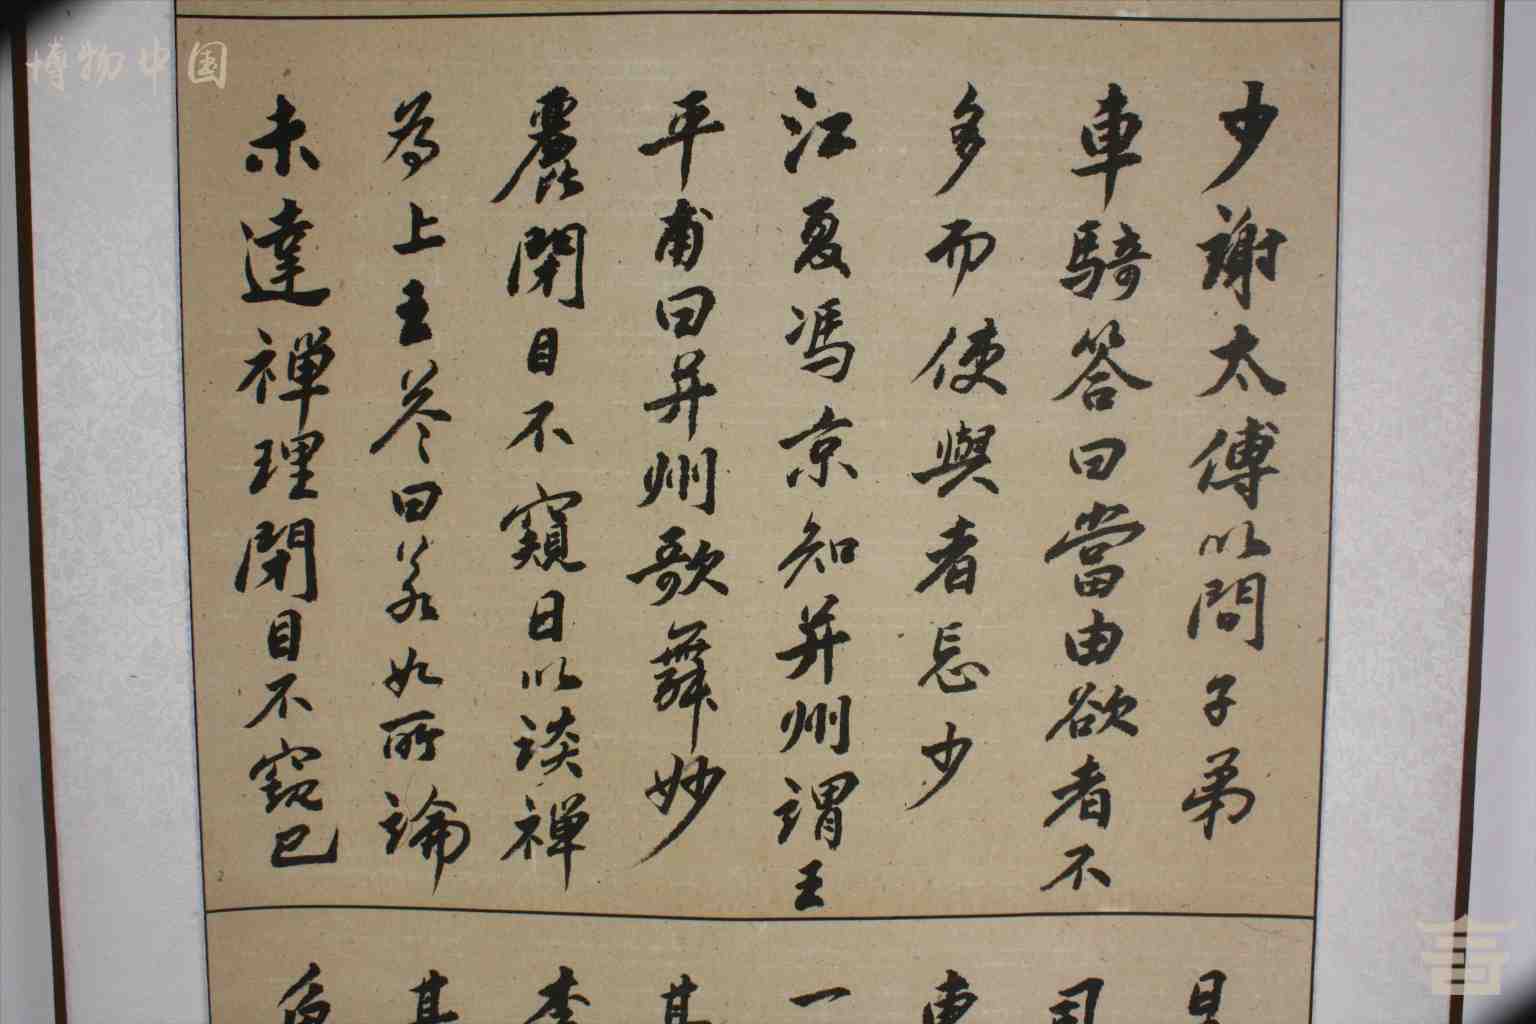 少謝太傅以問子弟
車騎答曰當由欲者不
多而使與者忘少
江夏馮京知并州謂王
平甫曰并州歌舞妙
麗閉目不窺日以談禪
為上王答曰若如所論
未達禪理閉目不窺已
博物中国